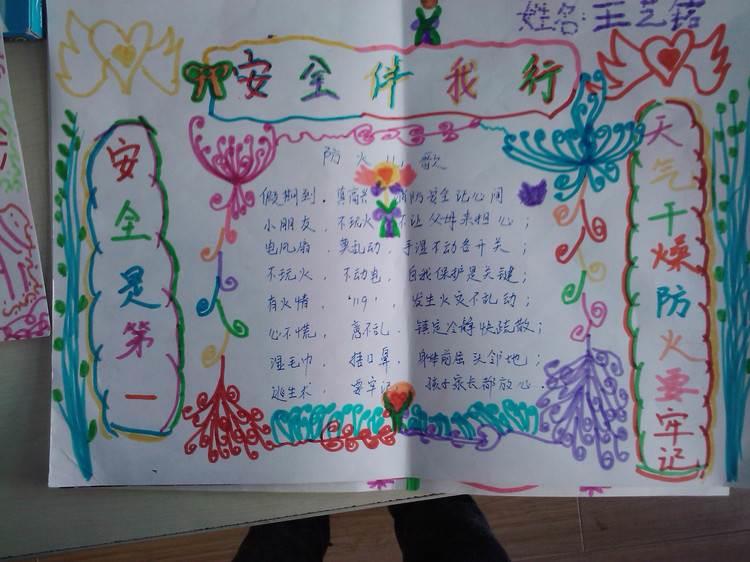 姓名:王艺铭
安全伴我行
安全是第一
防火儿歌
假期到,真高兴,消防安全记心间
小朋友,不玩火,不让父母来担心;
电风扇,莫乱动,手湿不动各开关;
不玩火,不动电,自我保护是关键;
有火情,"119",发生火灾不乱动;
心不慌,意不乱,镇定冷静快疏散;
湿毛巾,捂口鼻,身体前屈头邻地;
逃生术,要牢记,孩子家长都放心.
天气干燥防火要牢记